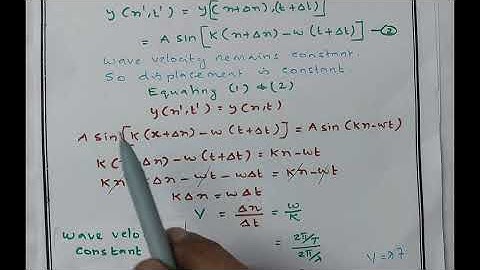 y(x',t') = y[(x+Δx),(t+Δt)]
= A sin[K(x+Δx)-w(t+Δt)] - ②
wave velocity remains constant.
So displacement is constant.
Equating (1) & (2)
y(x',t') = y(x,t)
A sin[K(x+Δx)-w(t+Δt)] = A sin(Kx-wt)
K( Δx)-w(t+Δt) = Kx-wt
Kx Δx-wt-wΔt = Kx-wt
KΔx = wΔt
V = Δx/Δt = w/K
wave
constant
= 2π/T / 2π/λ